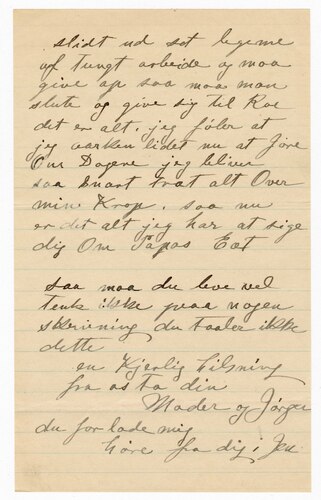 slidt ud sot legeme
af tungt arbeide og maa
give op saa maa man
slute og give sig til Roe
det er alt. jeg føler at
jeg aarken lidet nu at Jøre
Om Dagene jeg bliver
saa Snart trat alt Over
mine Krop. saa nu
er det alt jeg har at sige
dig Om Papas
saa maa du leve vel
tenk ikke paaa nogen
skrivning du taaler ikke
dette
en Kjerlig hilsning
fra os to din
Moder og Jørgen
du for lade mig
høre fra dig i